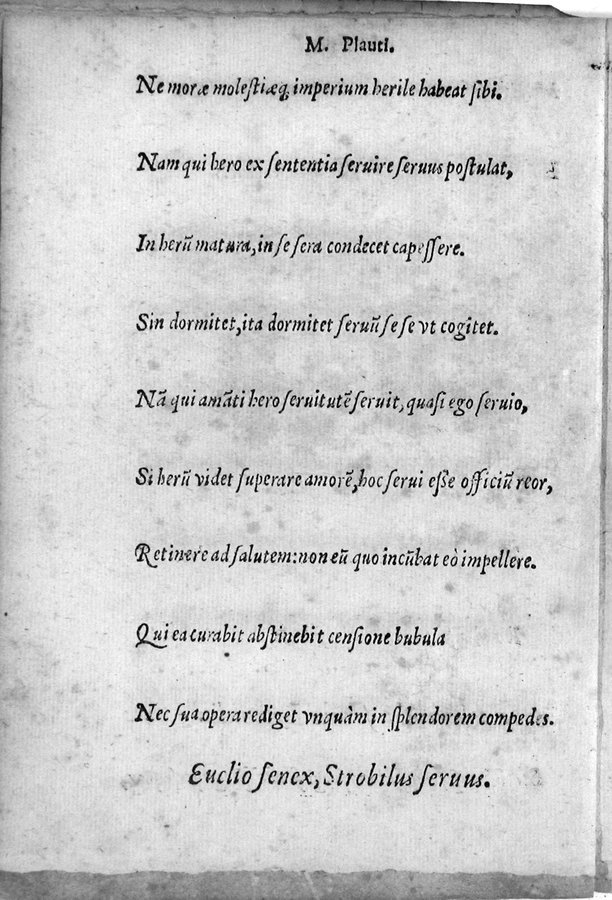 M. Plauti.
Ne moræ moleſtiæq; imperium herile habeat ſibi.
Nam qui hero ex ſententia ſeruire ſeruus poſtulat,
In herū matura, in ſe ſera condecet capeſſere.
Sin dormitet, ita dormitet ſeruū ſe ſe vt cogitet.
Nā qui amāti hero ſeruitutē ſeruit, quaſi ego ſeruio,
Si herū videt ſuperare amorē, hoc ſerui eſſe officiū reor,
Retinere ad ſalutem: non eū quo incūbat eò impellere.
Qui ea curabit abſtinebit cenſione bubula
Nec ſua opera rediget vnquàm in ſplendorem compedes.
Euclio ſenex, Strobilus ſeruus.